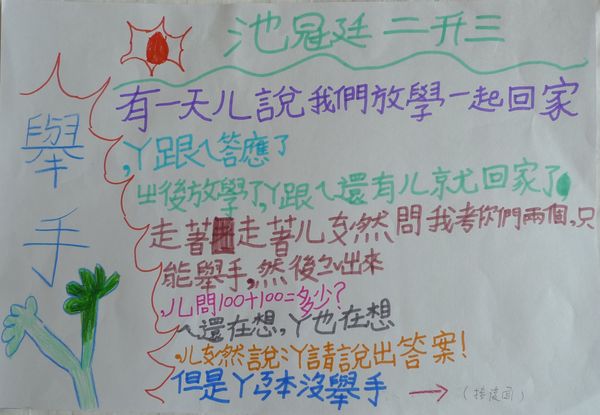 池冠廷 二升三
舉手
有一天ㄦ說我們放學一起回家
,ㄚ跟ㄟ答應了
出後放學了,ㄚ跟ㄟ還有ㄦ就尤回家了
走著走著ㄦ突然問我考你們兩個,只
能舉手,然後ㄋ出來
,ㄦ問100+100=多少?
ㄟ還在想,ㄚ也在想
,ㄦ突然說:ㄚ請說出答案!
但是ㄚㄎ本沒舉手 →